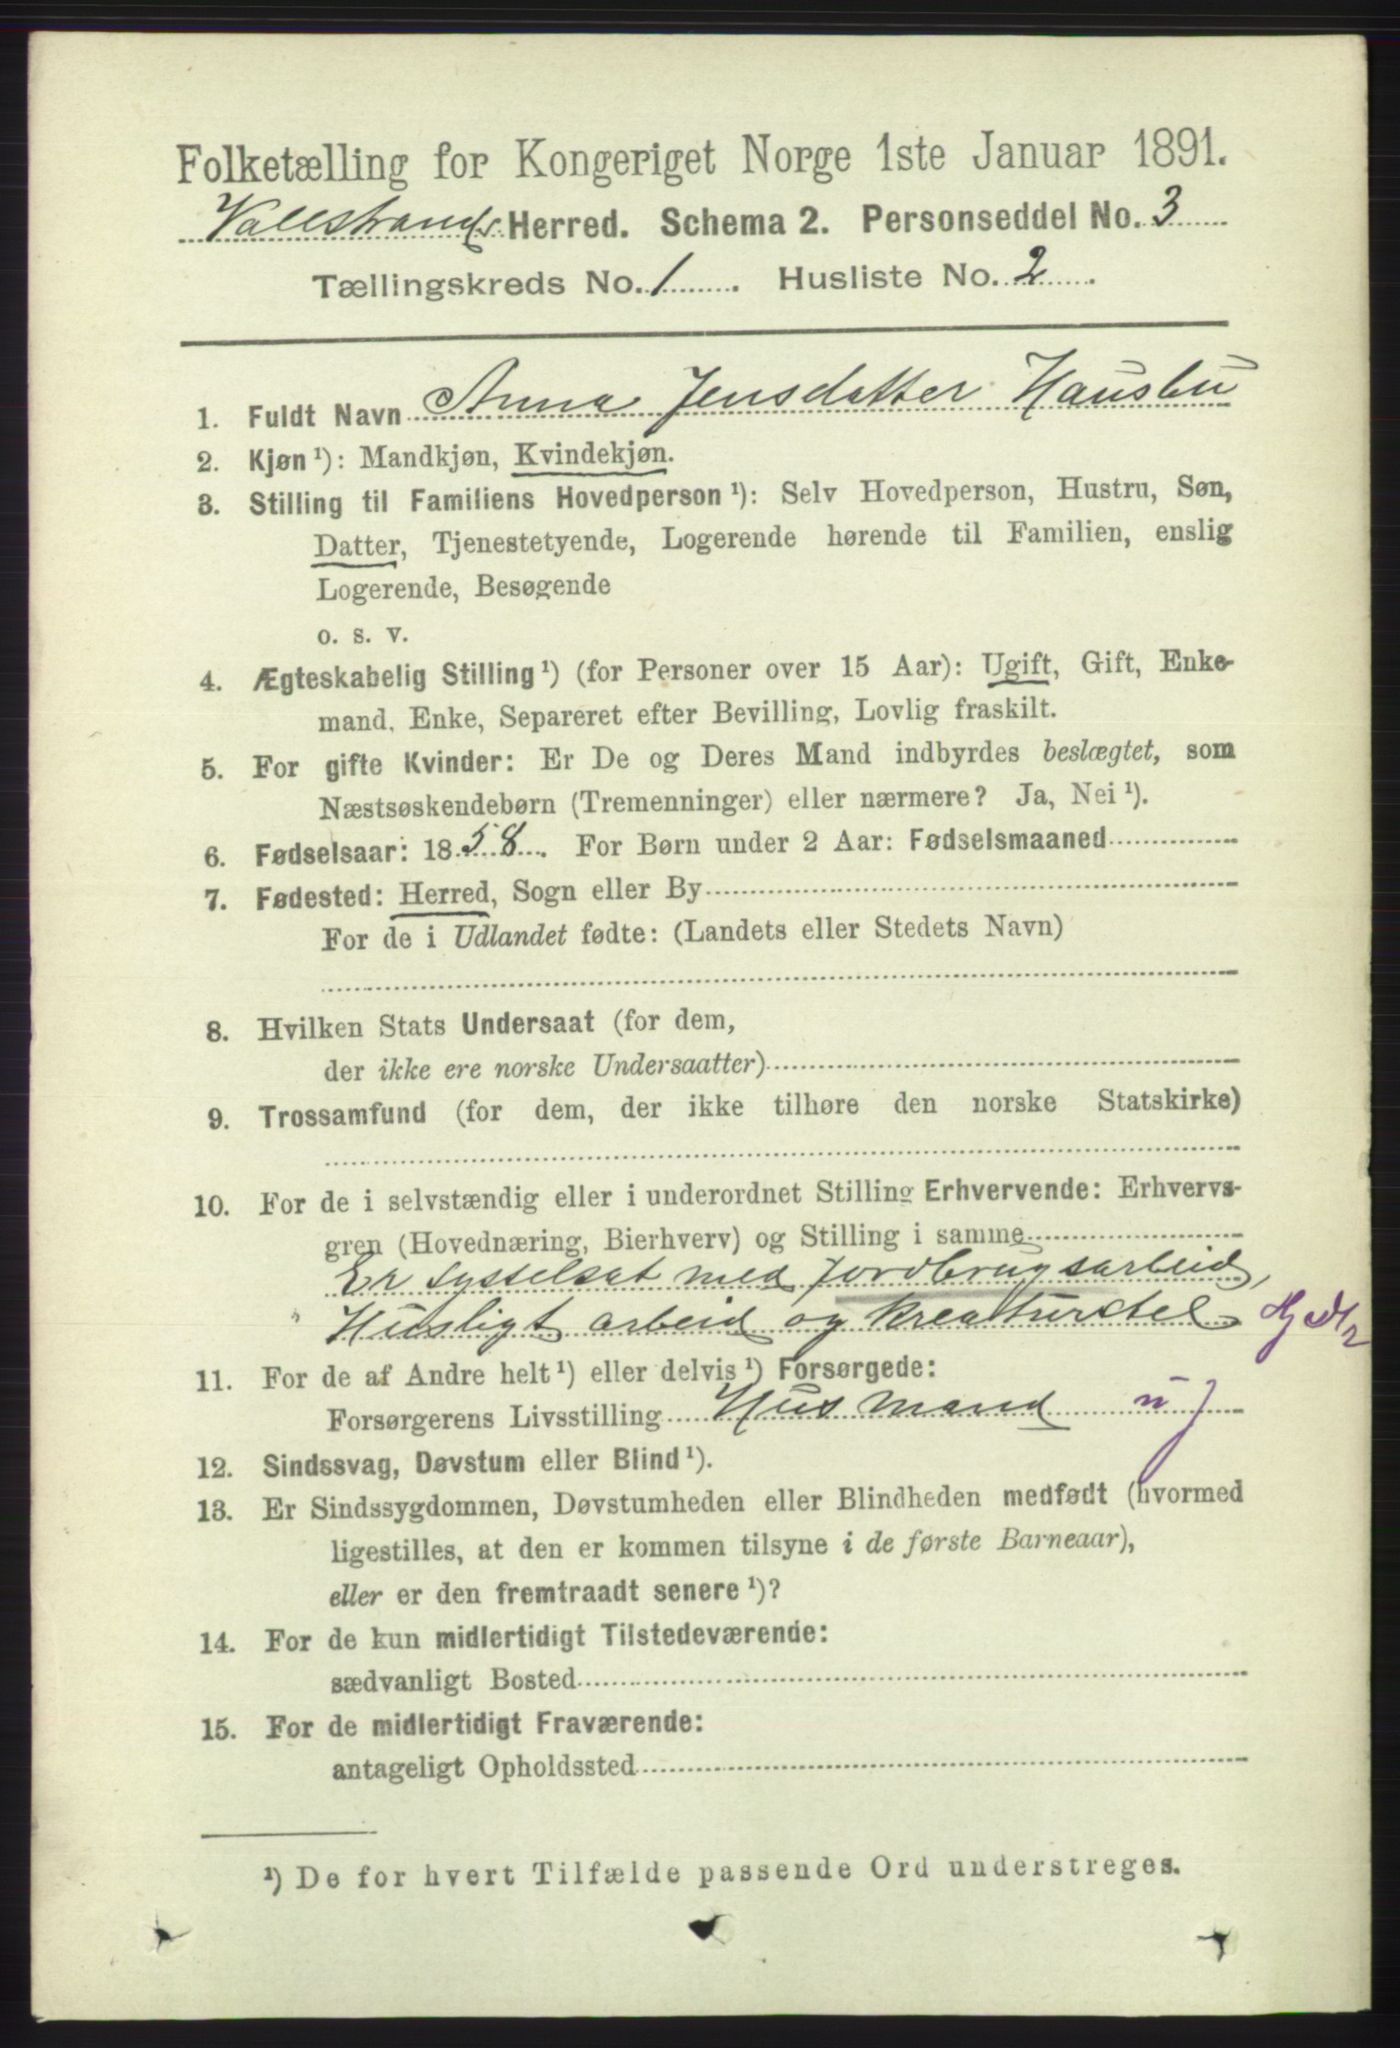 Folketælling for Kongeriget Norge 1ste Januar 1891.
Vallestrands Herred. Schema 2. Personseddel No. 3
Tællingskreds No. 1. Husliste No. 2.
1. Fuldt Navn Anna Jensdatter Hausbu
2. Kjøn ¹): Mandkjøn, Kvindekjøn.
3. Stilling til Familiens Hovedperson ¹): Selv Hovedperson, Hustru, Søn,
Datter, Tjenestetyende, Logerende hørende til Familien, enslig
Logerende, Besøgende
o. s. v.
4. Ægteskabelig Stilling ¹) (for Personer over 15 Aar): Ugift, Gift, Enke-
mand, Enke, Separeret efter Bevilling, Lovlig fraskilt.
5. For gifte Kvinder: Er De og Deres Mand indbyrdes beslægtet, som
Næstsøskendebørn (Tremenninger) eller nærmere? Ja, Nei ¹).
6. Fødselsaar: 1858. For Børn under 2 Aar: Fødselsmaaned
7. Fødested: Herred, Sogn eller By
For de i Udlandet fødte: (Landets eller Stedets Navn)
8. Hvilken Stats Undersaat (for dem,
der ikke ere norske Undersaatter)
9. Trossamfund (for dem, der ikke tilhøre den norske Statskirke)
10. For de i selvstændig eller i underordnet Stilling Erhvervende: Erhvervs-
gren (Hovednæring, Bierhverv) og Stilling i samme
Er sysselsat med Jordbrugsarbeid,
Husligt arbeid og kreaturstel
11. For de af Andre helt ¹) eller delvis ¹) Forsørgede:
Forsørgerens Livsstilling Husmand
12. Sindssvag, Døvstum eller Blind ¹).
13. Er Sindssygdommen, Døvstumheden eller Blindheden medfødt (hvormed
ligestilles, at den er kommen tilsyne i de første Barneaar),
eller er den fremtraadt senere ¹)?
14. For de kun midlertidigt Tilstedeværende:
sædvanligt Bosted
15. For de midlertidigt Fraværende:
antageligt Opholdssted
¹) De for hvert Tilfælde passende Ord understreges.